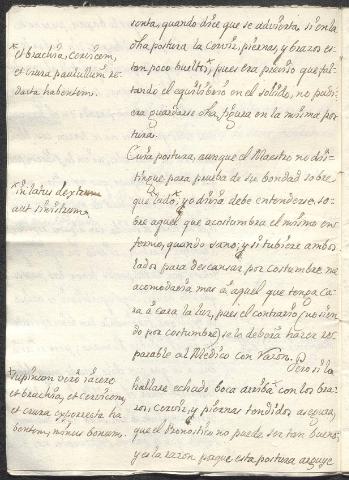 senta, quando dice que se advierta, si en la
dha postura la Cerviz, piernas, y brazos es-
tan poco bueltos*, pues era preciso que fal-
tando el equilibrio en el solido, no pudi-
era guardarse dha figura en la misma pos-
tura.
Cuia postura, aunque el Maestro no dis-
tingue para prueba de su bondad sobre
que lado*, yo diria debe entenderse, so-
bre aquel que acostumbra el mismo en-
fermo, quando sano; y si tubiere ambos
lados para descansar por costumbre me
acomodaria mas á aquel que tenga ca-
ra á cara la luz, pues el contrario (no sien-
do por costumbre) se le deberá hacer re-
parable al Medico con razon. Pero si le
hallare echado boca arriba* con los bra-
zos, Cerviz, y piernas tendidos asegura,
que el Pronostico no puede ser tan bueno,
y es la razon porque esta postura arguye
*et brachia, cervicem,
et crura paullulum re-
ducta habentem.
*in latus dextrum
aut sinistrum.
*supinum verò iacere
et brachia, et cervicem,
et crura exporrecta ha-
bentem, minus bonum.